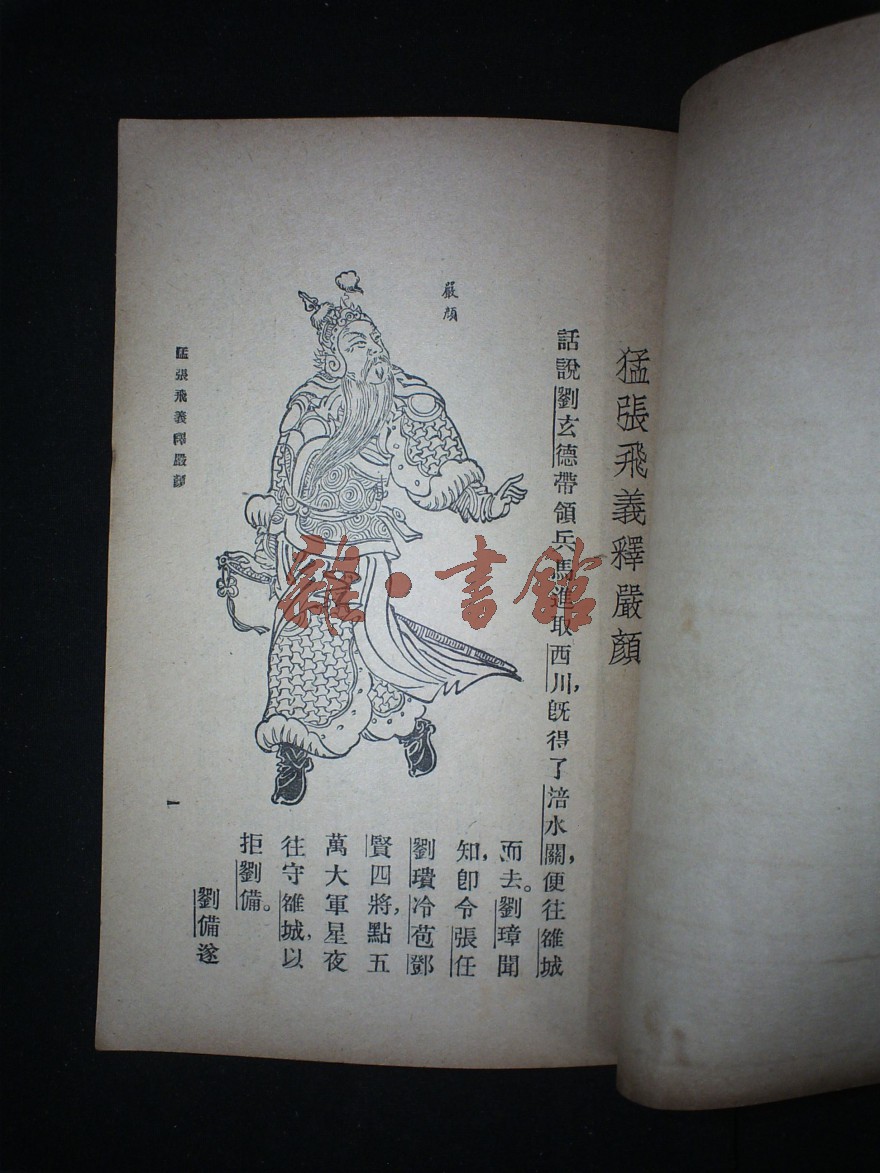 猛張飛義釋嚴顏
話說劉玄德帶領兵馬進取西川,旣得了涪水關,便往雒城
而去。劉璋聞
知,卽令張任
劉璝冷苞鄧
賢四將,點五
萬大軍星夜
往守雒城,以
拒劉備。
劉備遂
嚴顏
猛張飛義釋嚴顏
一
雜·書館